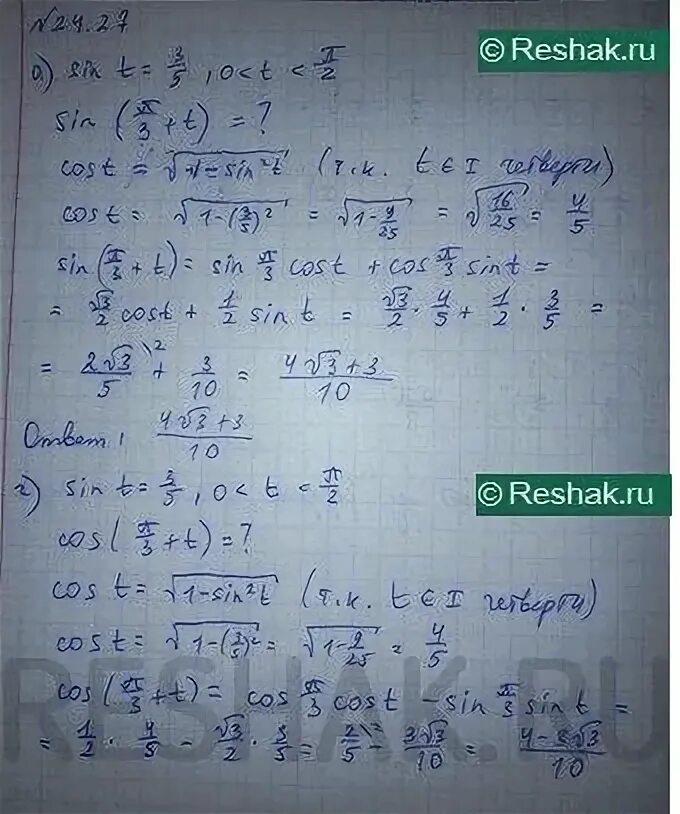 №24.27
© Reshak.ru
а) sin t = 3/5, 0 < t < π/2
sin (π/3 + t) = ?
cos t = √(1 - sin²t) (т.к. t ∈ I четверти)
cos t = √(1-(3/5)²) = √(1-9/25) = √(16/25) = 4/5
sin(π/3 + t) = sin π/3 cos t + cos π/3 sin t =
= √3/2 cos t + 1/2 sin t = √3/2 · 4/5 + 1/2 · 3/5 =
= 2√3/5 \2 + 3/10 = (4√3+3)/10
Ответ: (4√3+3)/10
© Reshak.ru
г) sin t = 3/5, 0 < t < π/2
cos(π/3 + t) = ?
cos t = √(1-sin²t) (т.к. t ∈ I четверти)
cos t = √(1-(3/5)²) = √(1-9/25) = 4/5
cos(π/3 + t) = cos π/3 cos t - sin π/3 sin t =
= 1/2 · 4/5 - √3/2 · 3/5 = 2/5 \2 - 3√3/10 = (4-3√3)/10
RESHAK.RU